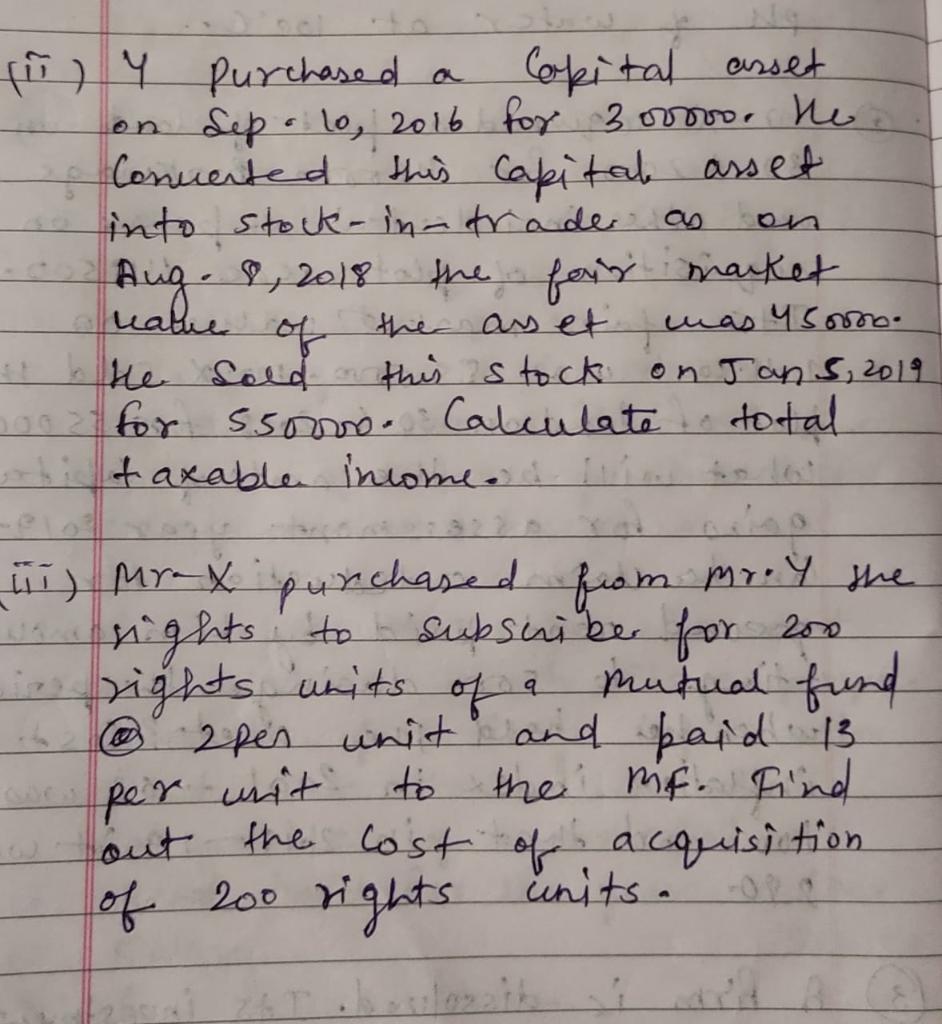 (ii) Y purchased a Capital asset
on Sep. 10, 2016 for 300000. He
Converted this Capital asset
into stock-in-trade as on
Aug. 8, 2018 the fair market
value of the asset was 450000.
He Sold this stock on Jan 5, 2019
for 550000. Calculate total
taxable income.
(iii) Mr-X purchased from Mr.Y the
rights to Subscribe for 200
rights units of a mutual fund
@ 2 per unit and paid 13
per unit to the MF. Find
out the Cost of acquisition
of 200 rights units.